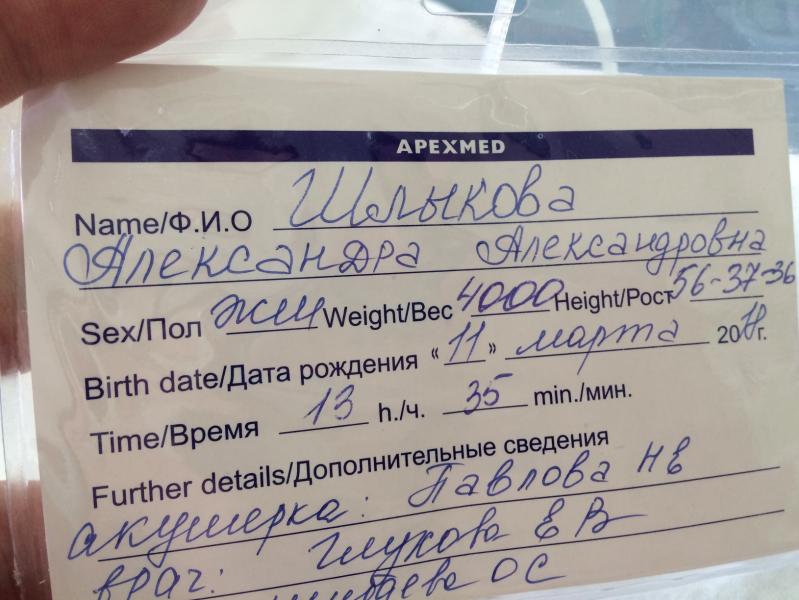 APEXMED
Name/Ф.И.О Шлыкова
Александра Александровна
Sex/Пол жен Weight/Вес 4000 Height/Рост 56-37-36
Birth date/Дата рождения «11» марта 2018г.
Time/Время 13 h./ч. 35 min./мин.
Further details/Дополнительные сведения
акушерка: Павлова НЕ
врач: Глухова ЕВ
ОС